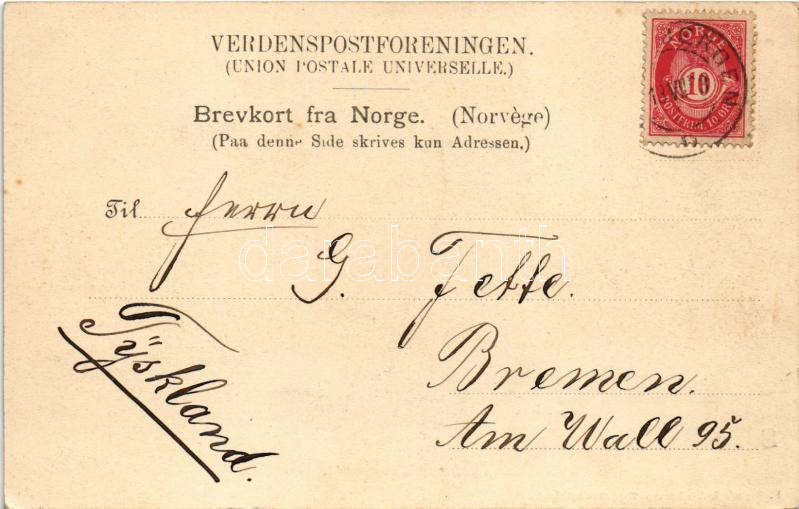 VERDENSPOSTFORENINGEN.
(UNION POSTALE UNIVERSELLE.)
Brevkort fra Norge. (Norvège)
(Paa denne Side skrives kun Adressen.)
NORGE
10
POSTFRIM. 10 ØRE
BERGEN
Til Herrn
G. Fette.
Bremen.
Am Wall 95.
Tÿskland.
darabanth